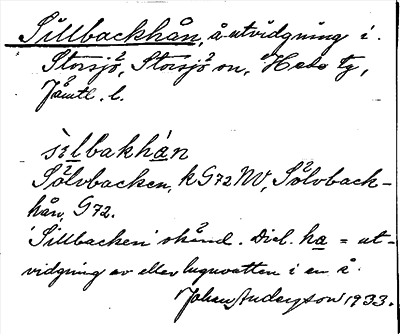 Sillbackhån, å-utvidgning i
Storsjö, Storsjö sn, Hede tg,
Jämtl. l.
sɩ̀lbakhán
Sölvbacken, k G72 NV, Sölvback-
hån, G72.
'Sillbacken' skånd. Dial. ha = ut-
vidgning av eller lugnvatten i en å.
Johan Anderson 1933.